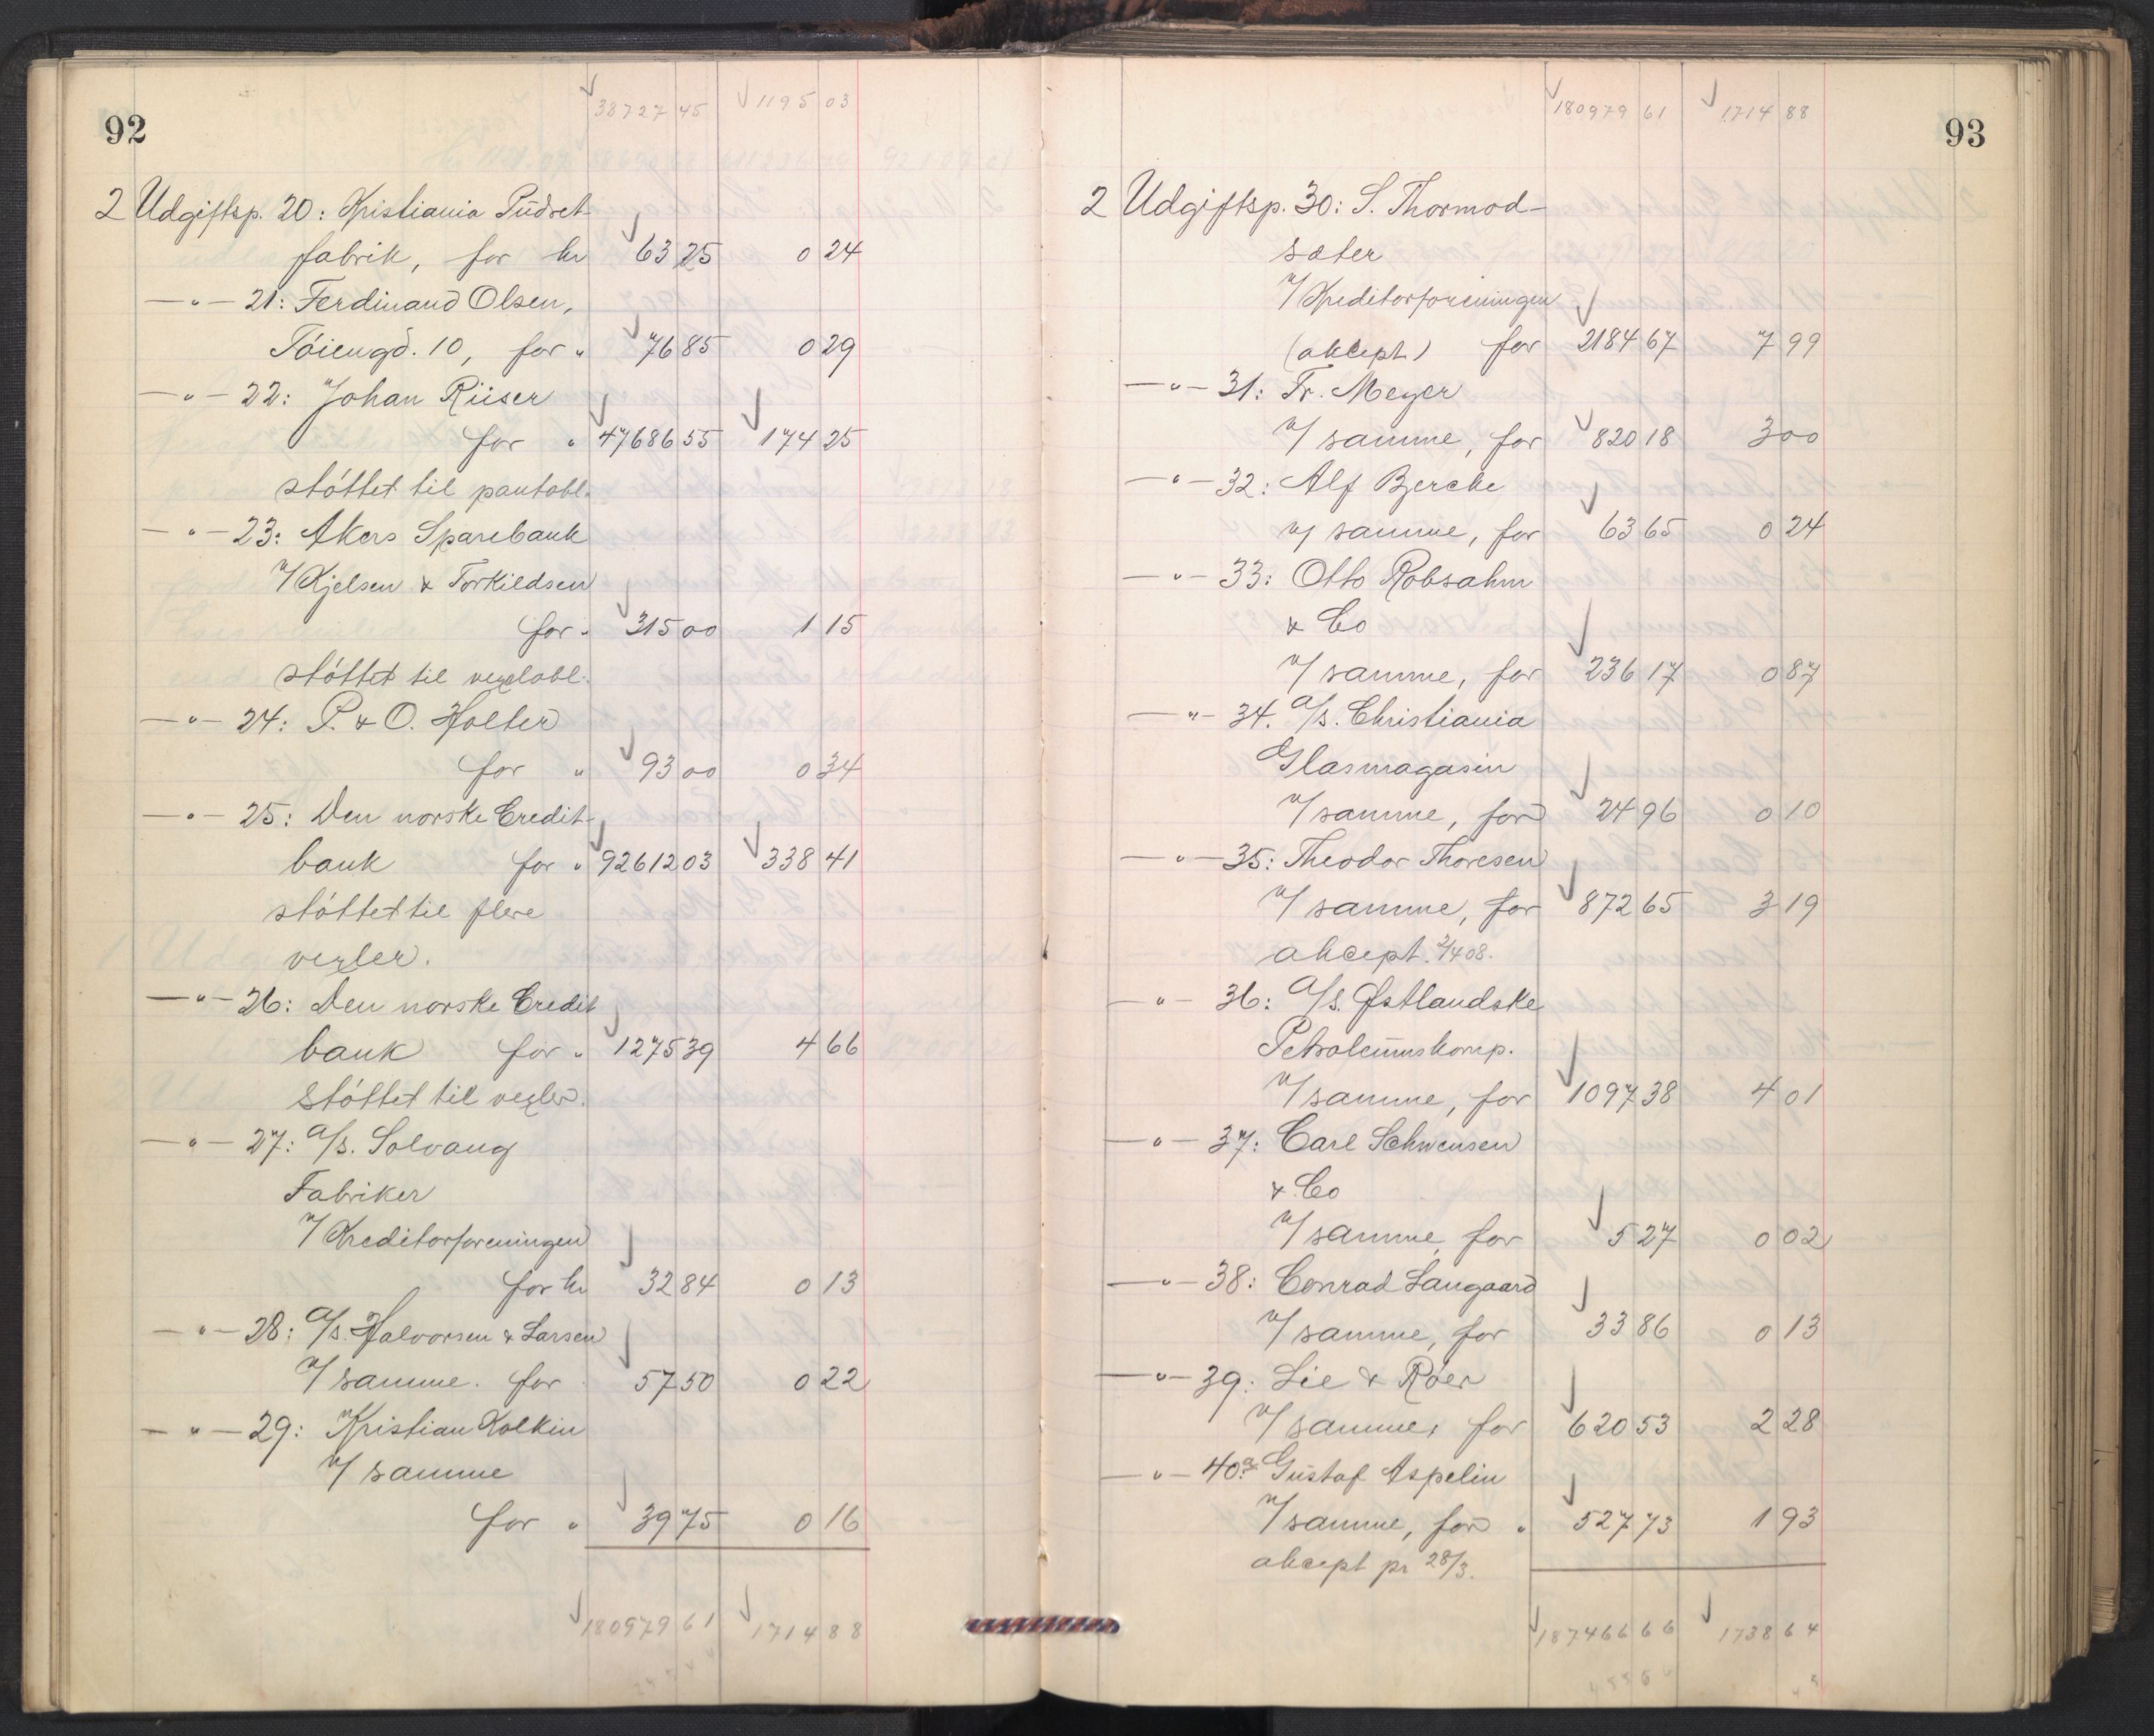 92
38727 45 1195 03
2 Udgiftsp. 20: Kristiania Pudret-
fabrik, for kr 63 25 0 24
—„— 21: Ferdinand Olsen,
Töiengd. 10, for „ 76 85 0 29
—„— 22: Johan Riiser
for „ 47686 55 174 25
støttet til pantobl.
—„— 23: Akers Sparebank
v/ Kjelsen & Torkildsen
for „ 315 00 1 15
støttet til vexelobl.
—„— 24: P. & O. Holter
for „ 93 00 0 34
—„— 25: Den norske Credit-
bank for „ 92612 03 338 41
støttet til flere
vexler.
—„— 26: Den norske Credit
bank for „ 1275 39 4 66
støttet til vexler.
—„— 27: A/s. Solvang
Fabriker
v/ Kreditorforeningen
for kr 32 84 0 13
—„— 28: A/s. Halvorsen & Larsen
v/ samme. for 57 50 0 22
—„— 29: Kristian Kolkin
v/ samme
for „ 39 75 0 16
180979 61 1714 88
93
180979 61 1714 88
2 Udgiftsp. 30: S. Thormod-
sæter
v/ Kreditorforeningen
(akcept) for 2184 67 7 99
—„— 31: Fr. Meyer
v/ samme, for 820 18 3 00
—„— 32: Alf Bjercke
v/ samme, for 63 65 0 24
—„— 33: Otto Robsahm
& Co
v/ samme, for 236 17 0 87
—„— 34. A/s. Christiania
Glasmagasin
v/ samme, for 24 96 0 10
—„— 35: Theodor Thoresen
v/ samme, for 872 65 3 19
akcept. 2/4 08.
—„— 36: A/s. Østlandske
Petroleumskomp.
v/ samme, for 1097 38 4 01
—„— 37: Carl Schwensen
& Co
v/ samme, for 5 27 0 02
—„— 38: Conrad Langaard
v/ samme, for 33 86 0 13
—„— 39: Lie & Röer
v/ samme, for 620 53 2 28
—„— 40a: Gustaf Aspelin
v/ samme, for „ 527 73 1 93
akcept pr 28/3.
187466 66 1738 64